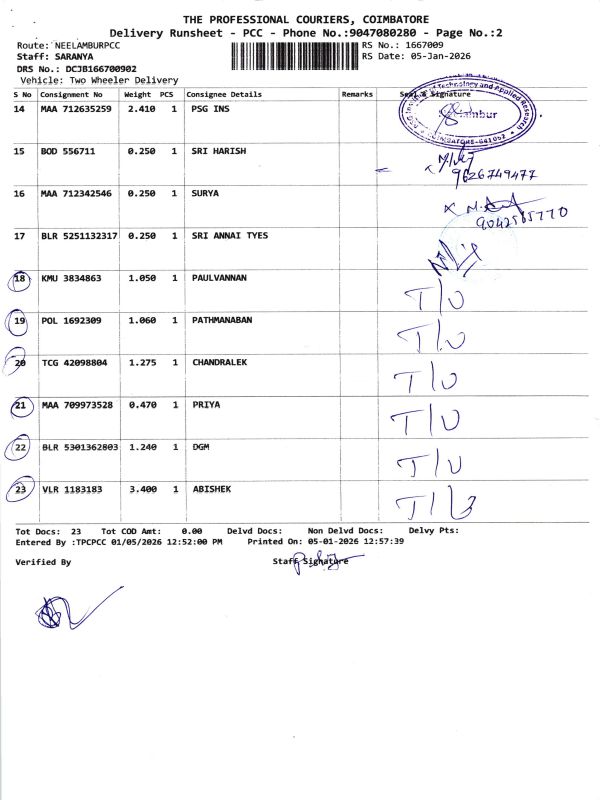 THE PROFESSIONAL COURIERS, COIMBATORE
Delivery Runsheet - PCC - Phone No.:9047080280 - Page No.:2
Route: NEELAMBURPCC RS No.: 1667009
Staff: SARANYA RS Date: 05-Jan-2026
DRS No.: DCJB166700902
Vehicle: Two Wheeler Delivery
S No Consignment No Weight PCS Consignee Details Remarks Seal & Signature
14 MAA 712635259 2.410 1 PSG INS
Technology and Applied Research
COIMBATORE-641062
15 BOD 556711 0.250 1 SRI HARISH
9626749477
16 MAA 712342546 0.250 1 SURYA
9042565770
17 BLR 5251132317 0.250 1 SRI ANNAI TYES
18 KMU 3834863 1.050 1 PAULVANNAN T/U
19 POL 1692309 1.060 1 PATHMANABAN T/U
20 TCG 42098804 1.275 1 CHANDRALEK T/U
21 MAA 709973528 0.470 1 PRIYA T/U
22 BLR 5301362803 1.240 1 DGM T/U
23 VLR 1183183 3.400 1 ABISHEK
Tot Docs: 23 Tot COD Amt: 0.00 Delvd Docs: Non Delvd Docs: Delvy Pts:
Entered By :TPCPCC 01/05/2026 12:52:00 PM Printed On: 05-01-2026 12:57:39
Verified By Staff Signature